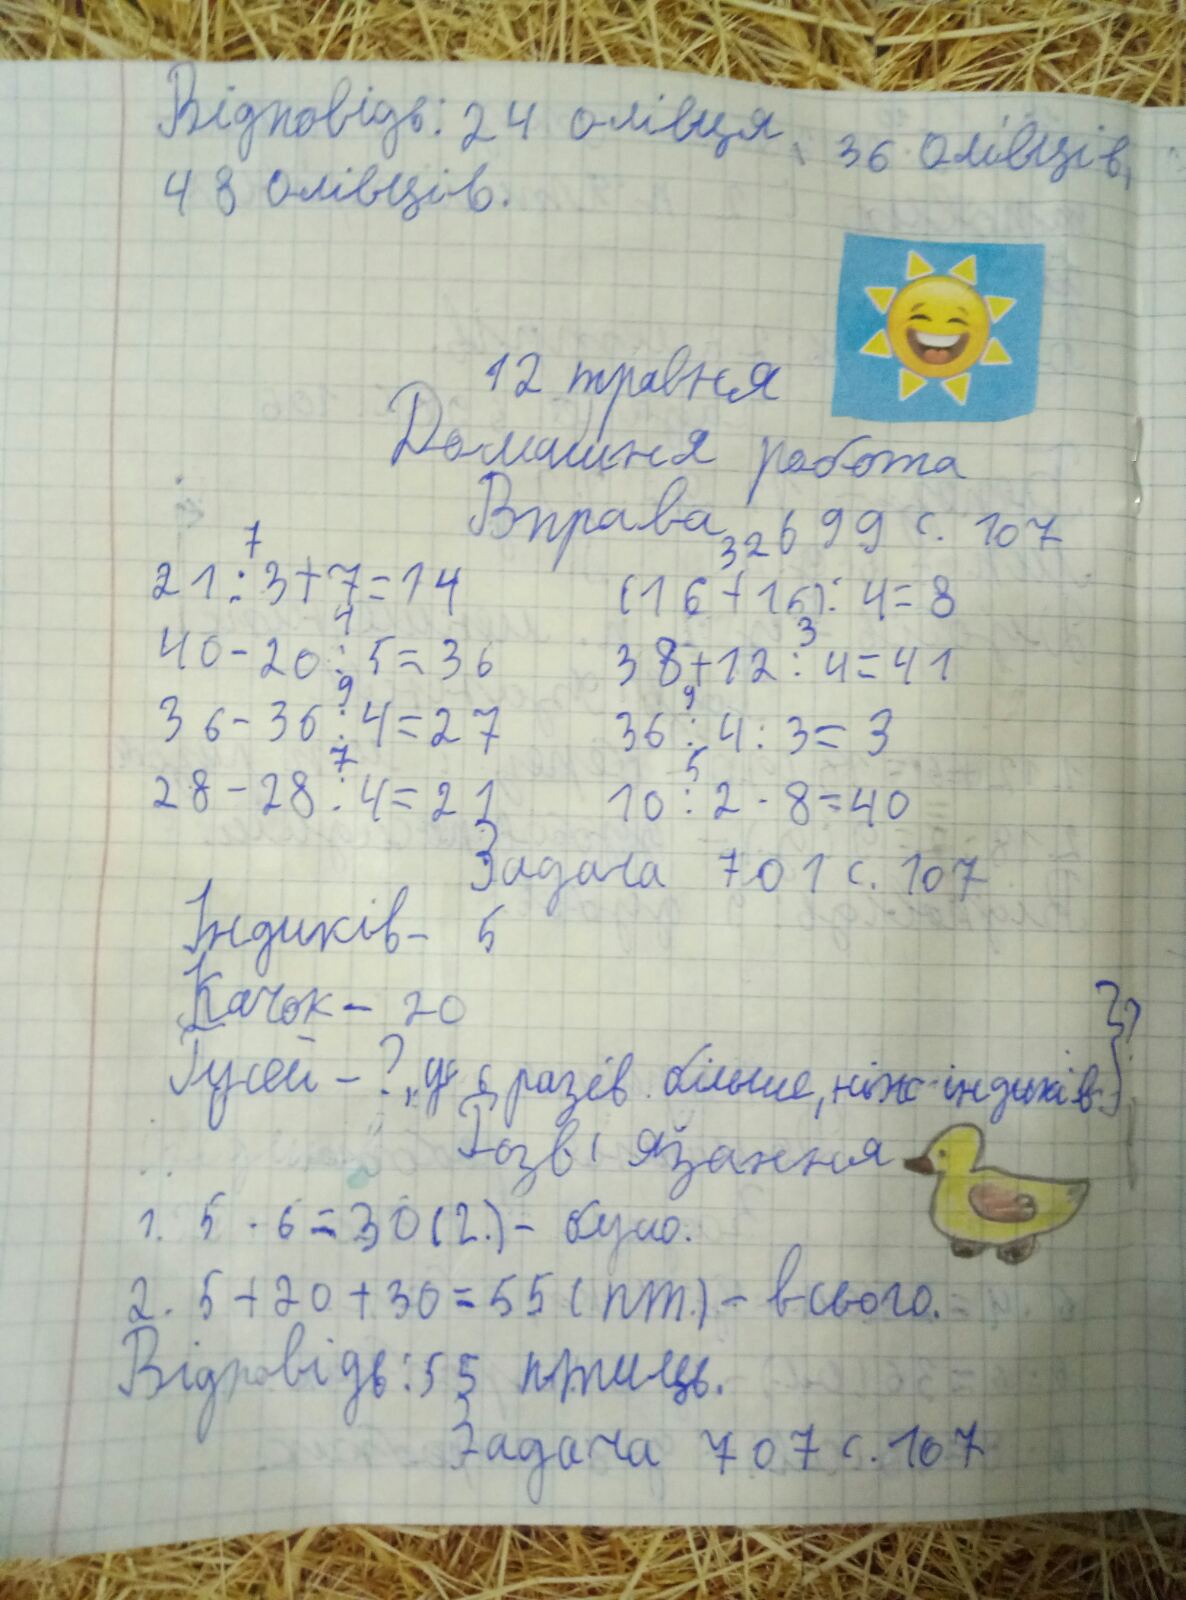 Відповідь: 24 олівця, 36 олівців,
48 олівців.
12 травня
Домашня робота
Вправа 699 с. 107
7 32
21 : 3 + 7 = 14 (16 + 16) : 4 = 8
4 3
40 - 20 : 5 = 36 38 + 12 : 4 = 41
9 9
36 - 36 : 4 = 27 36 : 4 : 3 = 3
7 5
28 - 28 : 4 = 21 10 : 2 · 8 = 40
Задача 701 с. 107
Індиків - 5
Качок - 20
Гусей - ?, у 6 разів більше, ніж індиків } ?
Розв'язання
1. 5 · 6 = 30 (г.) - було.
2. 5 + 20 + 30 = 55 (пт.) - всього.
Відповідь: 55 птиць.
Задача 707 с. 107